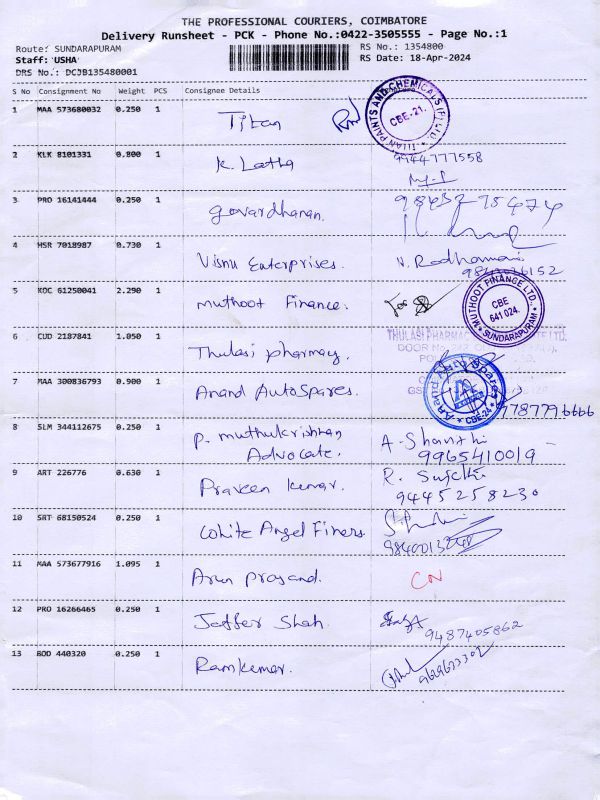 THE PROFESSIONAL COURIERS, COIMBATORE
Delivery Runsheet - PCK - Phone No.:0422-3505555 - Page No.:1
Route: SUNDARAPURAM RS No.: 1354800
Staff: USHA RS Date: 18-Apr-2024
DRS No.: DCJB135480001
S No Consignment No Weight PCS Consignee Details
1 MAA 573680032 0.250 1 Titan
TITAN PAINTS AND CHEMICALS (P) LTD. CBE-21.
2 KLK 8101331 0.800 1 K. Latha 9944777558
3 PRO 16141444 0.250 1 govardhanan.
4 HSR 7018987 0.730 1 Visnu Enterprises. V. Radhamani
5 KOC 61250041 2.290 1 muthoot Finance.
MUTHOOT FINANCE LTD. CBE 641 024. SUNDARAPURAM
6 CUD 2187841 1.050 1 Thulasi pharmacy.
THULASI PHARMAC
DOOR No.
7 MAA 300836793 0.900 1 Anand AutoSpares.
Anand Auto Spares CBE-24
8 SLM 344112675 0.250 1 P. muthukrishnan A. Shanthi
Advocate. 9965410019
9 ART 226776 0.630 1 Praveen kumar. R. Sujethi
9445258230
10 SRT 68150524 0.250 1 White Angel Finers
11 MAA 573677916 1.095 1 Arun prasand. CN
12 PRO 16266465 0.250 1 Jaffer Shah.
9487405862
13 BOD 440320 0.250 1 Ramkumar.